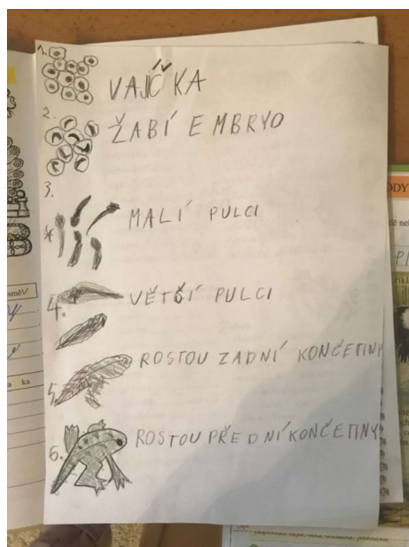 1. VAJÍČKA
2. ŽABÍ EMBRYO
3. MALÍ PULCI
4. VĚTŠÍ PULCI
5. ROSTOU ZADNÍ KONČETINY
6. ROSTOU PŘEDNÍ KONČETINY